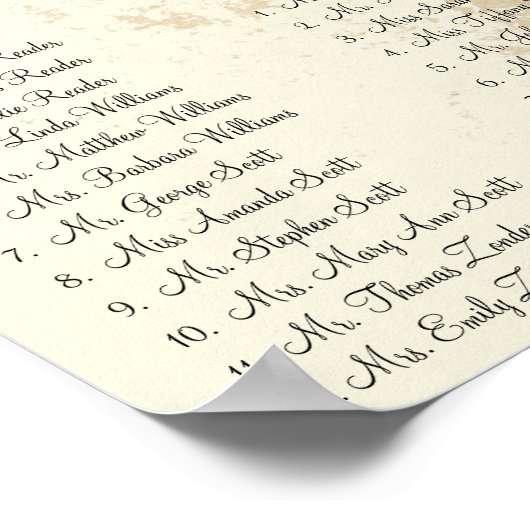 Reader
Reader
Reader
Linda Williams
Mr. Matthew Williams
Mrs. Barbara Williams
7. Mr. George Scott
8. Miss Amanda Scott
9. Mr. Stephen Scott
10. Mrs. Mary Ann Scott
11. Mr. Thomas
Mrs. Emily
1. Mr.
2. Mr.
3. Miss
4. Miss Tiffany
5. Mr.
6.